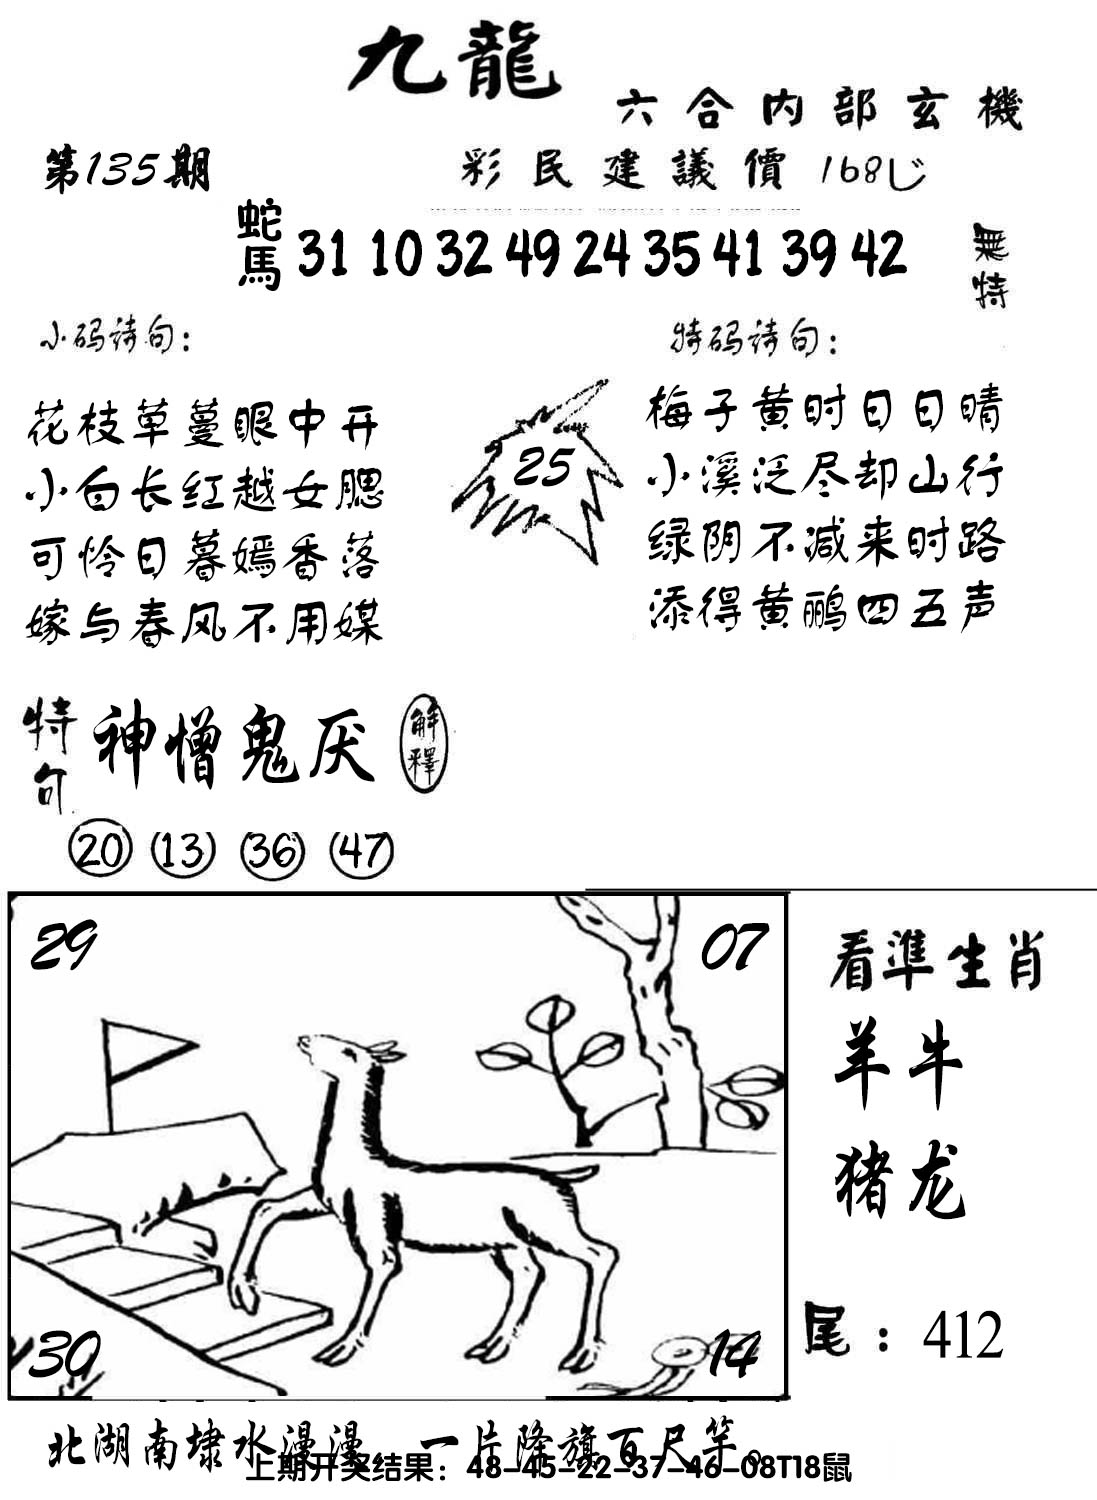 九龍
六合内部玄機
第135期
彩民建議價 168
蛇馬 31 10 32 49 24 35 41 39 42 無特
小码诗句：
花枝草蔓眼中开
小白长红越女腮
可怜日暮嫣香落
嫁与春风不用媒
25
特码诗句：
梅子黄时日日晴
小溪泛尽却山行
绿阴不减来时路
添得黄鹂四五声
特句 神憎鬼厌 解釋
20 13 36 47
29 07
30 14
看準生肖
羊牛
猪龙
尾：412
北湖南埭水漫漫 一片降旗百尺竿。
上期开奖结果：48-45-22-37-46-08T18鼠